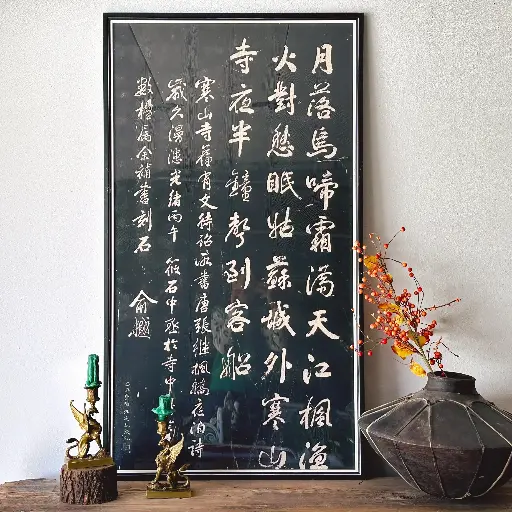 月落烏啼霜滿天江楓漁
火對愁眠姑蘇城外寒山
寺夜半鐘聲到客船
寒山寺舊有文待詔所書唐張繼楓橋夜泊詩
歲久漫漶光緒丙午筱石中丞於寺中
數楹屬余補書刻石
俞樾